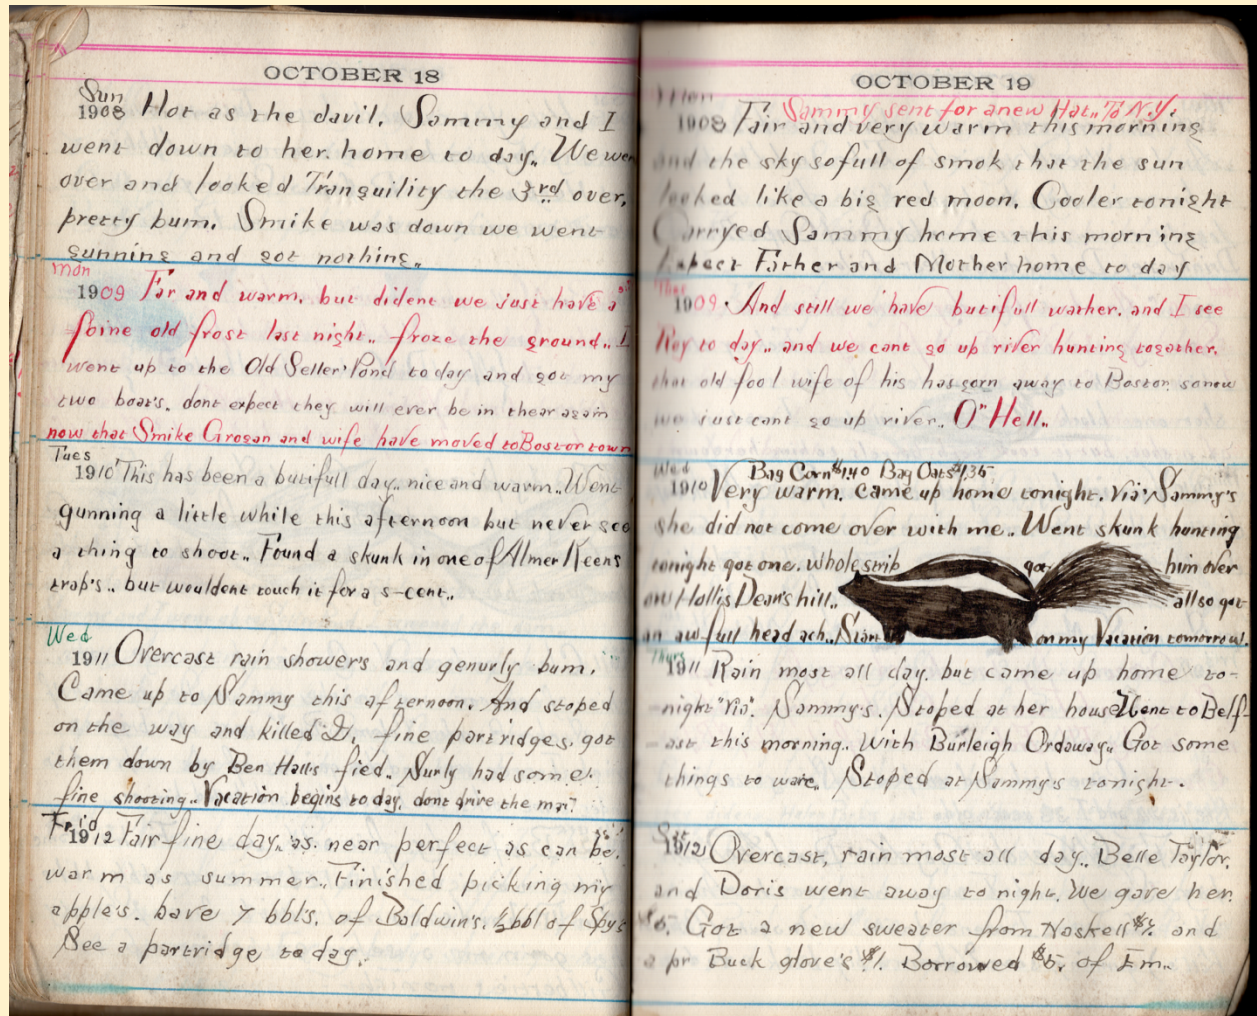 OCTOBER 18
Sun
1908 Hot as the davil. Sammy and I
went down to her. home to day.. We wen
over and looked Tranquility the 3rd over.
pretty bum. Smike was down we went
gunning and got nothing..
Mon
1909 Far and warm. but dident we just have a
foine old frost last night.. froze the ground.. I
went up to the Old Seller' Pond to day and got my
two boat's. dont expect they will ever be in thear again
now that Smike Grogan and wife have moved to Boston town
Tues
1910 This has been a butifull day.. nice and warm.. Went
gunning a little while this afternoon but never see
a thing to shoot.. Found a skunk in one of Almer Keens
trap's.. but wouldent touch it for a 5-cent..
Wed
1911 Overcast rain shower's and genurly bum.
Came up to Sammy this afternoon. And stoped
on the way and killed 2. fine partridges. got
them down by Ben Halls fied.. Surly had some.
fine shooting.. Vacation begins to day, dont drive the mai
Frid
1912 Fair fine day.. as. near perfect as can be.
warm as summer.. Finished picking my
apple's. have 7 bbl's. of Baldwin's. ½ bbl of Spy's
See a partridge to day.
OCTOBER 19
Mon
Sammy sent for a new Hat.. To N.Y.
1908 Fair and very warm this morning
and the sky so full of smok that the sun
looked like a big red moon. Cooler tonight
Carryed Sammy home this morning
Expect Father and Mother home to day
Tues
1909 And still we have butifull wather. and I see
Roy to day.. and we cant go up river hunting together.
that old fool wife of his has gorn away to Boston. so now
we just cant go up river.. O" Hell..
Wed
Bag Corn $1.40 Bag Oats $1.35
1910 Very warm. came up home tonight. Via' Sammy's
she did not come over with me.. Went skunk hunting
tonight got one. whole strip got him over
on Hollis Dean's hill.. all so got
an awfull head ach.. Start on my Vacation tomorrow.
Thurs
1911 Rain most all day. but came up home to-
night "Via". Sammy's. Stoped at her house Went to Belf-
ast this morning.. With Burleigh Ordaway.. Got some
things to ware.. Stoped at Sammy's tonight.
Sat
1912 Overcast, rain most all day.. Belle Taylor.
and Doris went away to night. We gave her.
Got a new sweater from Haskell and
a pr Buck glove's $1. Borrowed $5. of Em..